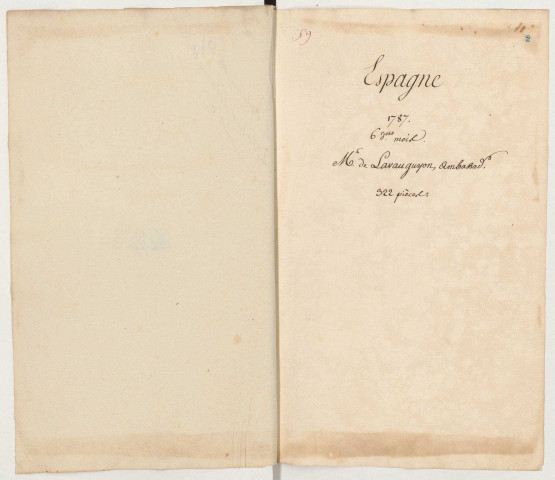 59
2
Espagne
1787.
6 Dres mois.
Mr. de Lavauguyon, Ambassadr.
322 pièces.